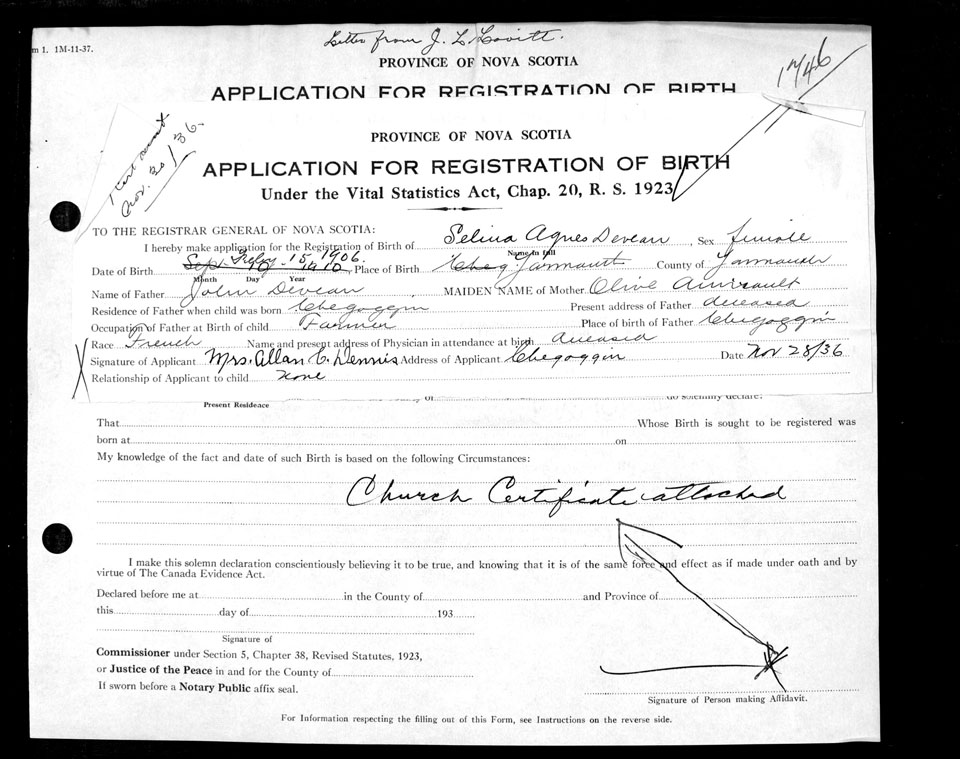 Letter from J. L. Lovitt.
m 1. 1M-11-37.
PROVINCE OF NOVA SCOTIA
1746
APPLICATION FOR REGISTRATION OF BIRTH
Nov. 30/36.
PROVINCE OF NOVA SCOTIA
APPLICATION FOR REGISTRATION OF BIRTH
Under the Vital Statistics Act, Chap. 20, R. S. 1923
TO THE REGISTRAR GENERAL OF NOVA SCOTIA:
I hereby make application for the Registration of Birth of Selina Agnes Devean, Sex female
Name in full
Date of Birth Sept. 10 1910 Feby. 15, 1906. Place of Birth Cheg. Yarmouth County of Yarmouth
Month Day Year
Name of Father John Devean MAIDEN NAME of Mother Olive Amirault
Residence of Father when child was born Chegoggin Present address of Father deceased
Occupation of Father at Birth of child Farmer Place of birth of Father Chegoggin
Race French Name and present address of Physician in attendance at birth deceased
Signature of Applicant Mrs. Allan C. Dennis Address of Applicant Chegoggin Date Nov 28/36
Relationship of Applicant to child None
of do solemnly declare:
Present Residence
That Whose Birth is sought to be registered was
born at on
My knowledge of the fact and date of such Birth is based on the following Circumstances:
Church Certificate attached
I make this solemn declaration conscientiously believing it to be true, and knowing that it is of the same force and effect as if made under oath and by
virtue of The Canada Evidence Act.
Declared before me at in the County of and Province of
this day of 193
Signature of
Commissioner under Section 5, Chapter 38, Revised Statutes, 1923,
or Justice of the Peace in and for the County of
If sworn before a Notary Public affix seal.
Signature of Person making Affidavit.
For Information respecting the filling out of this Form, see Instructions on the reverse side.